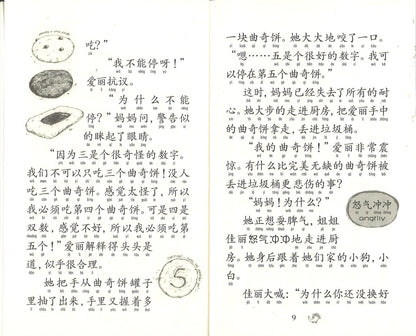 吃？”
“我不能停呀！”
爱丽抗议。
“为什么不能
停？”妈妈问，警告似
的眯起了眼睛。
“因为三是个很奇怪的数字。
我们不可以只吃三个曲奇饼！没人
吃三个曲奇饼，感觉太怪了，所以
我必须吃第四个曲奇饼。可是四是
双数，感觉不好，所以我必须吃第
五个！”爱丽解释得头头是
道，似乎很合理。
她把手从曲奇饼罐子
里抽了出来，手里又握着多
5
一块曲奇饼。她大大地咬了一口。
“嗯……五是个很好的数字。我可
以停在第五个曲奇饼。”
这时，妈妈已经失去了所有的耐
心。她大步的走进厨房，把爱丽手中
的曲奇饼拿走，丢进垃圾桶。
“我的曲奇饼！”爱丽非常震
惊。有什么比完美无缺的曲奇饼被
丢进垃圾桶更悲伤的事？
“妈妈！为什么？”
她正想耍脾气，姐姐
佳丽怒气冲冲地走进厨
房。她身后跟着她们家的小狗，小
白。
佳丽大喊：“为什么你还没换好
怒气冲冲
angrily
9